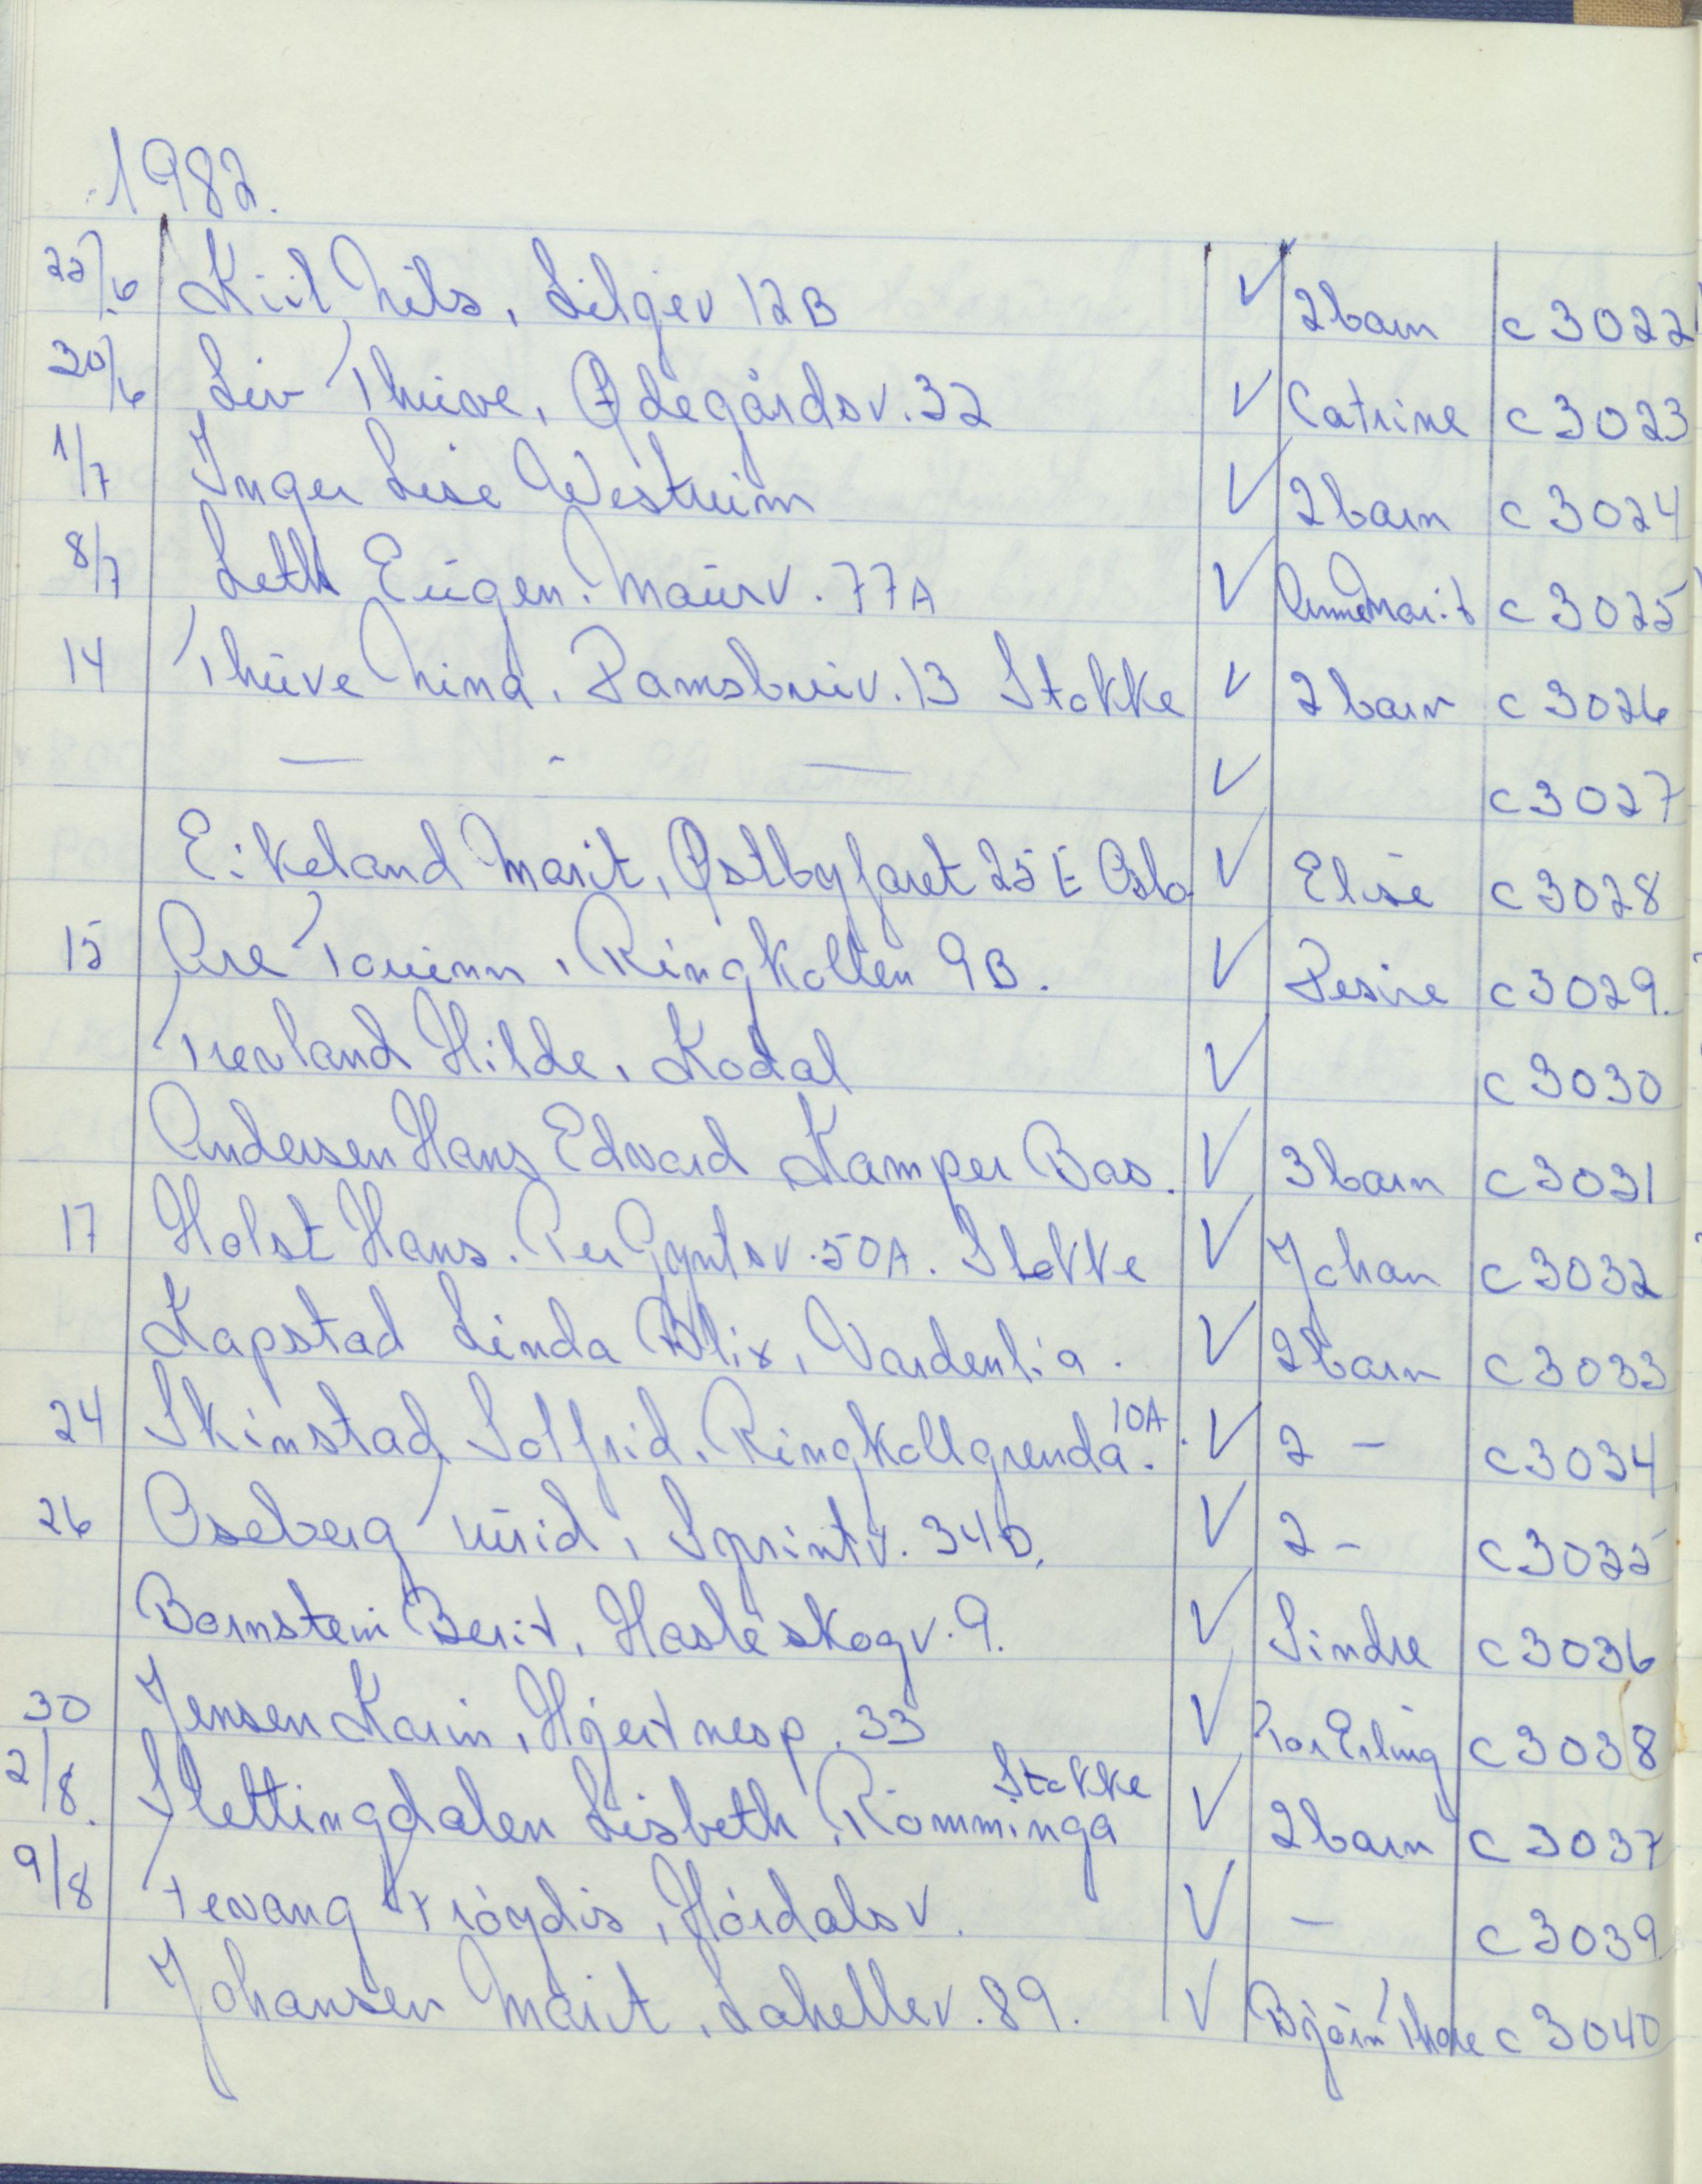 1982.
22/6 Kiil Nils, Liljev 12B V 2barn c3022
30/6 Liv Thurve, Ødegårdsv. 32 V Catrine c3023
1/7 Inger Lise Westrum V 2barn c3024
8/7 Leth Eugen. Maurv. 77A V Anne Marit c3025
14 Thuve Nina. 13 Stokke V 2barn c3026
— - — V c3027
Eikeland Marit, Østbyfaret 25E Oslo V Elise c3028
15 Are, Ringkollen 9B. V Desire c3029.
Trevland Hilde, Kodal V c3030
Andersen Hans Edvard Kamper Bas. V 3barn c3031
17 Holst Hans. Per Gyntsv. 50A. Stokke V Johan c3032
Kapstad Linda Blix, Vardenlia. V 2barn c3033
24 Skinstad Solfrid. Ringkollgrenda 10A. V 2 - c3034
26 Oseberg Turid, Sprintv. 34D. V 2 - c3035
Bornstein Berit, Hasleskogv. 9. V Sindre c3036
30 Jensen Karin, Hjertnesp. 33 V Per Erling c3038
2/8. Slettingdalen Lisbeth, Rømminga Stokke V 2barn c3037
9/8 Tevang Frøydis, Hårdalsv. V - c3039
Johansen Marit, Lahellev. 89. V Bjørn Thore c3040